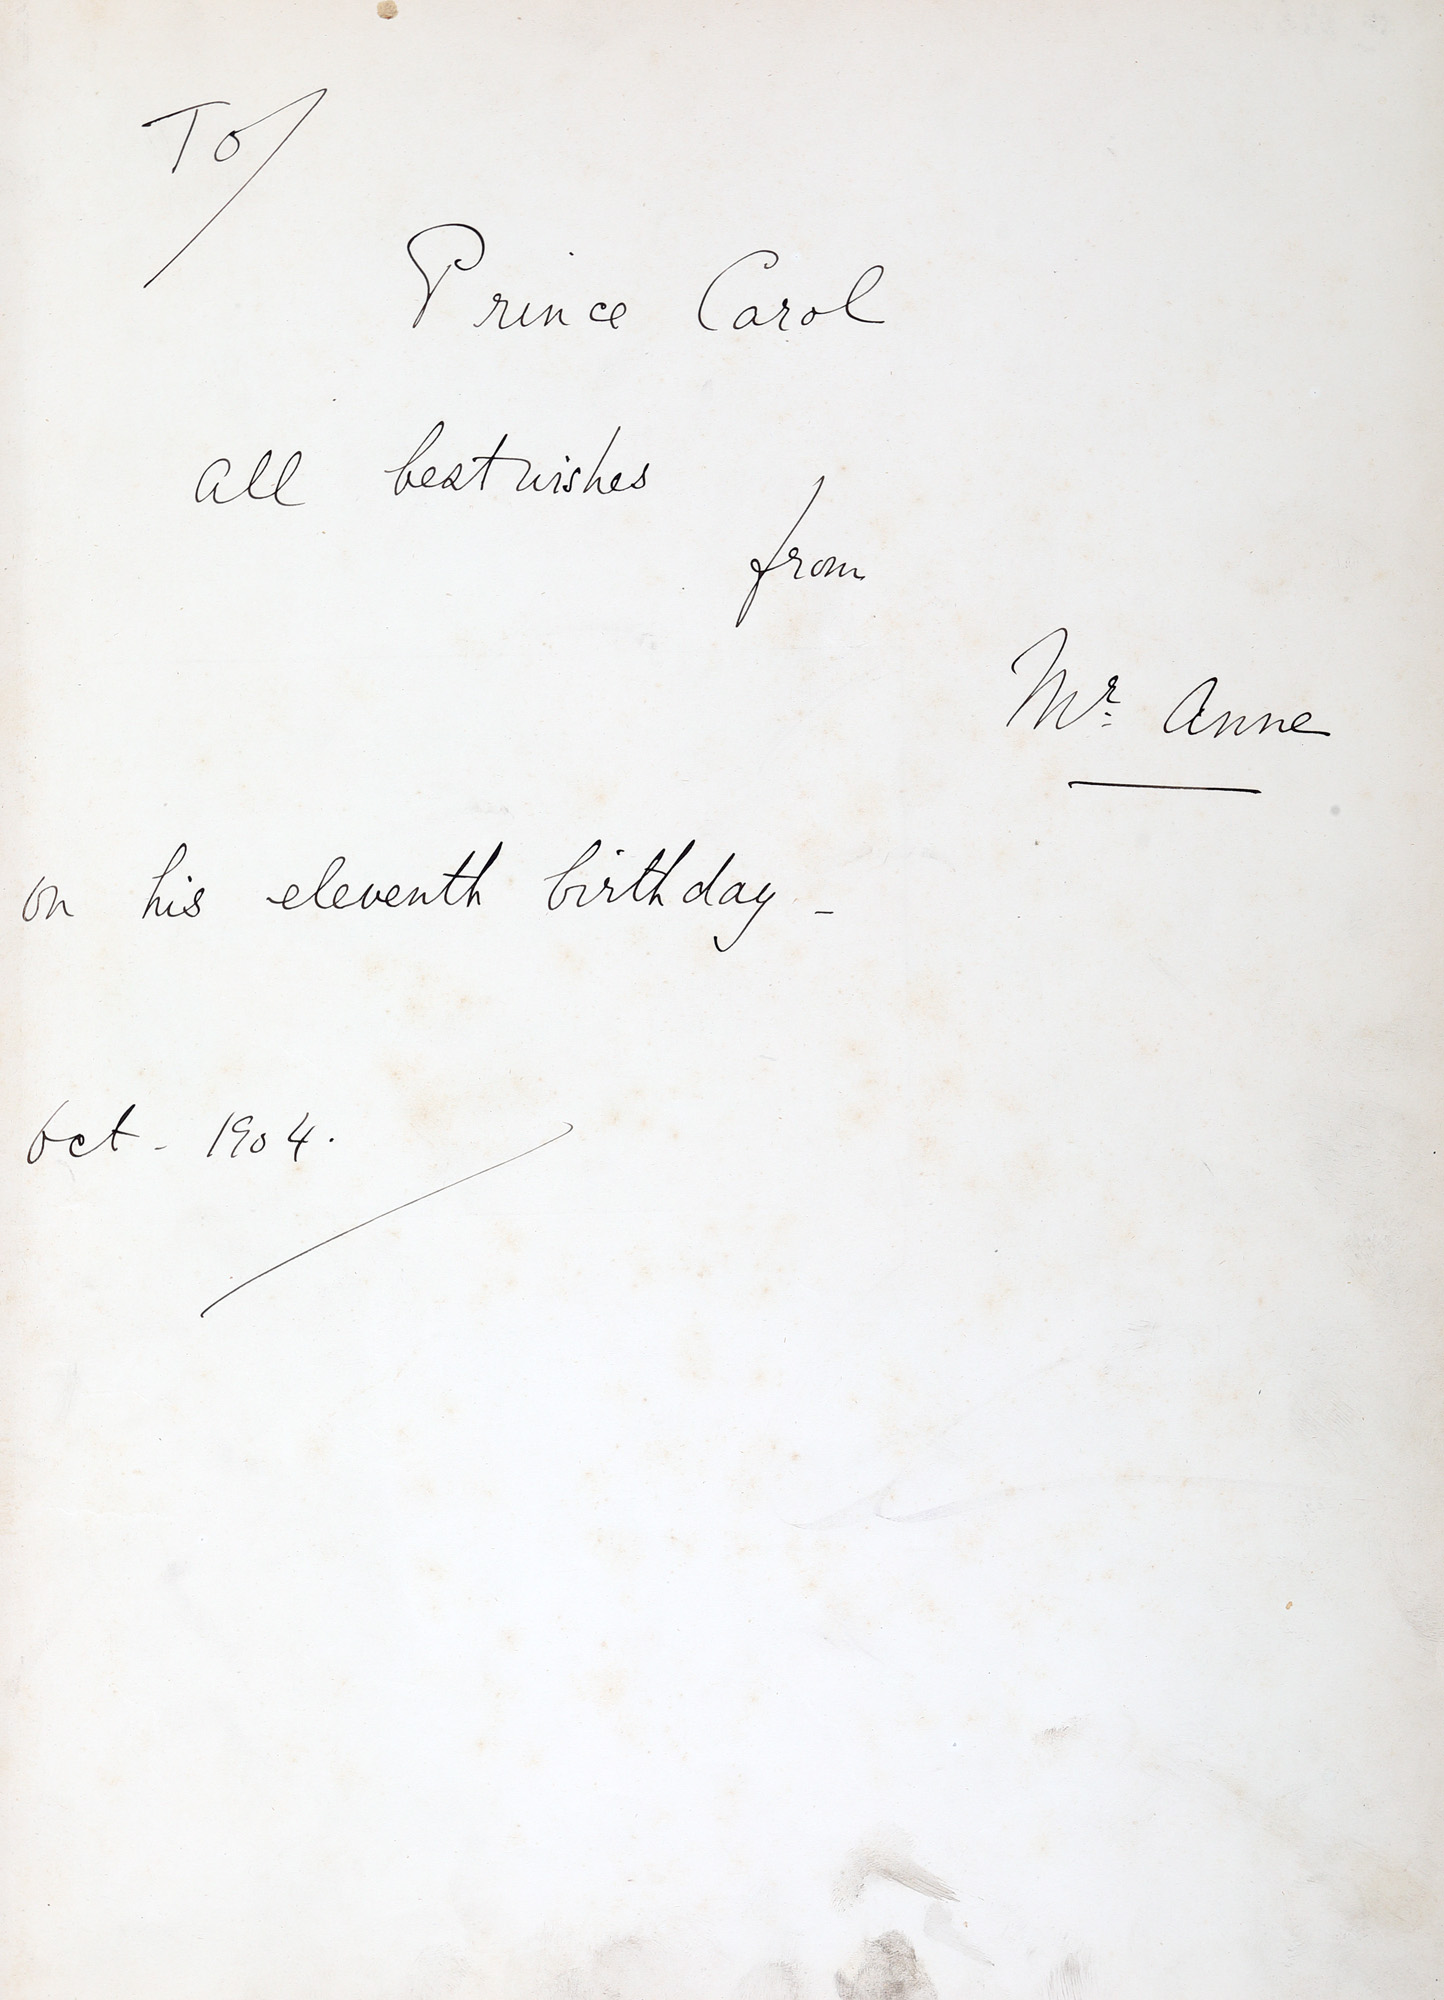 To/
Prince Carol
all best wishes
from
Mr. Anne
on his eleventh birthday -
Oct - 1904.